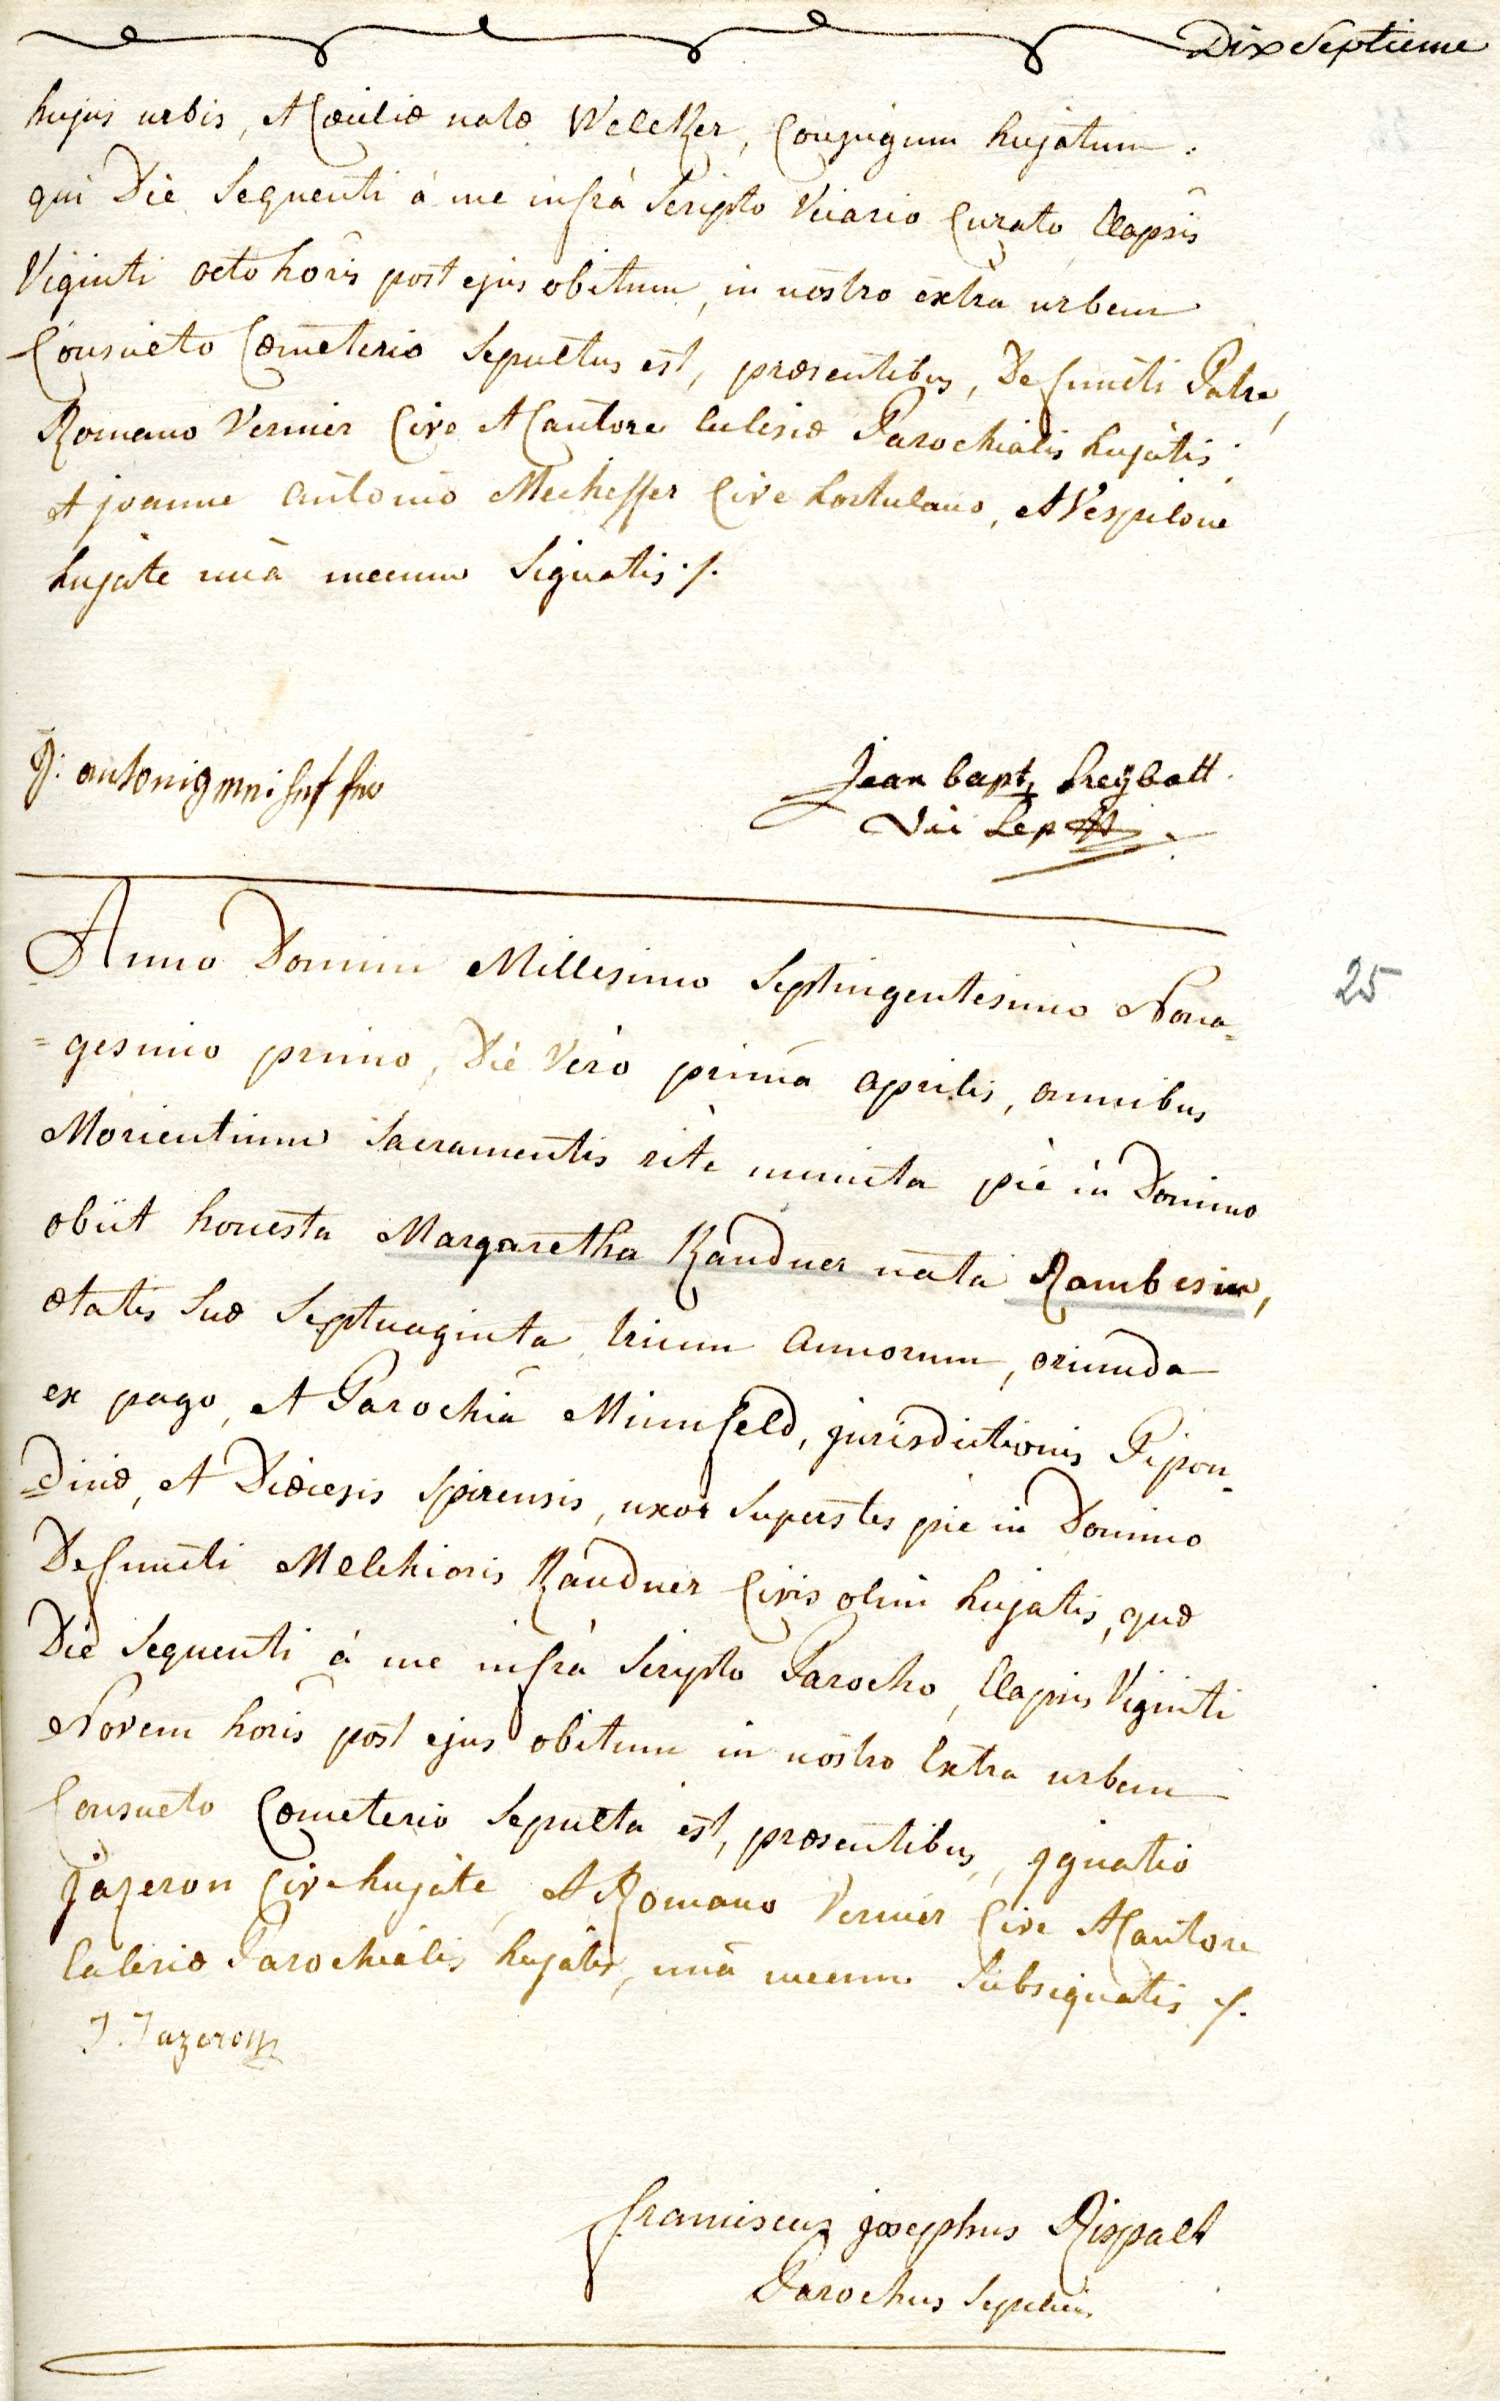 Dix Septieme
hujus urbis, et Cæciliæ natæ Welcker, Conjugum hujatum.
qui Die Sequenti à me infrà Scripto Vicario Curato, Elapsis
Viginti octo horis post ejus obitum, in nostro extra urbem
Consueto Cœmeterio Sepultus est, præsentibus, Defuncti Patre,
Romano Vernier Cive et Cantore Ecclesiæ Parochialis hujatis,
et joanne antonio Meiheffer Cive hortulano, et Vespilone
hujate unà mecum Signatis ./.
Jean bapt. Freybott.
Vic Sep
Anno Domini Millesimo Septingentesimo Nona-
=gesimo primo, Die Vero primâ aprilis, omnibus
Morientium Sacramentis ritè munita piè in Domino
obiit honesta Margaretha Kandner nata Rambesin,
ætatis Suæ Septuaginta trium Annorum, oriunda
ex pago, et Parochiâ Minnfeld, jurisdictionis Pipon-
=dinæ, et Diœcesis Spirensis, uxor Superstes piè in Domino
Defuncti Melchioris Kandner Civis olim hujatis, quæ
Die Sequenti à me infrà Scripto Parocho, Elapsis Viginti
Novem horis post ejus obitum in nostro Extra urbem
Consueto Cœmeterio Sepulta est, præsentibus, jgnatio
jazeron Cive hujate, et Romano Vernier Cive et Cantore
Ecclesiæ Parochialis hujatis, unà mecum Subsignatis ./.
J. Jazeron
franciscus josephus Rispalt
Parochus Sepeliens
25